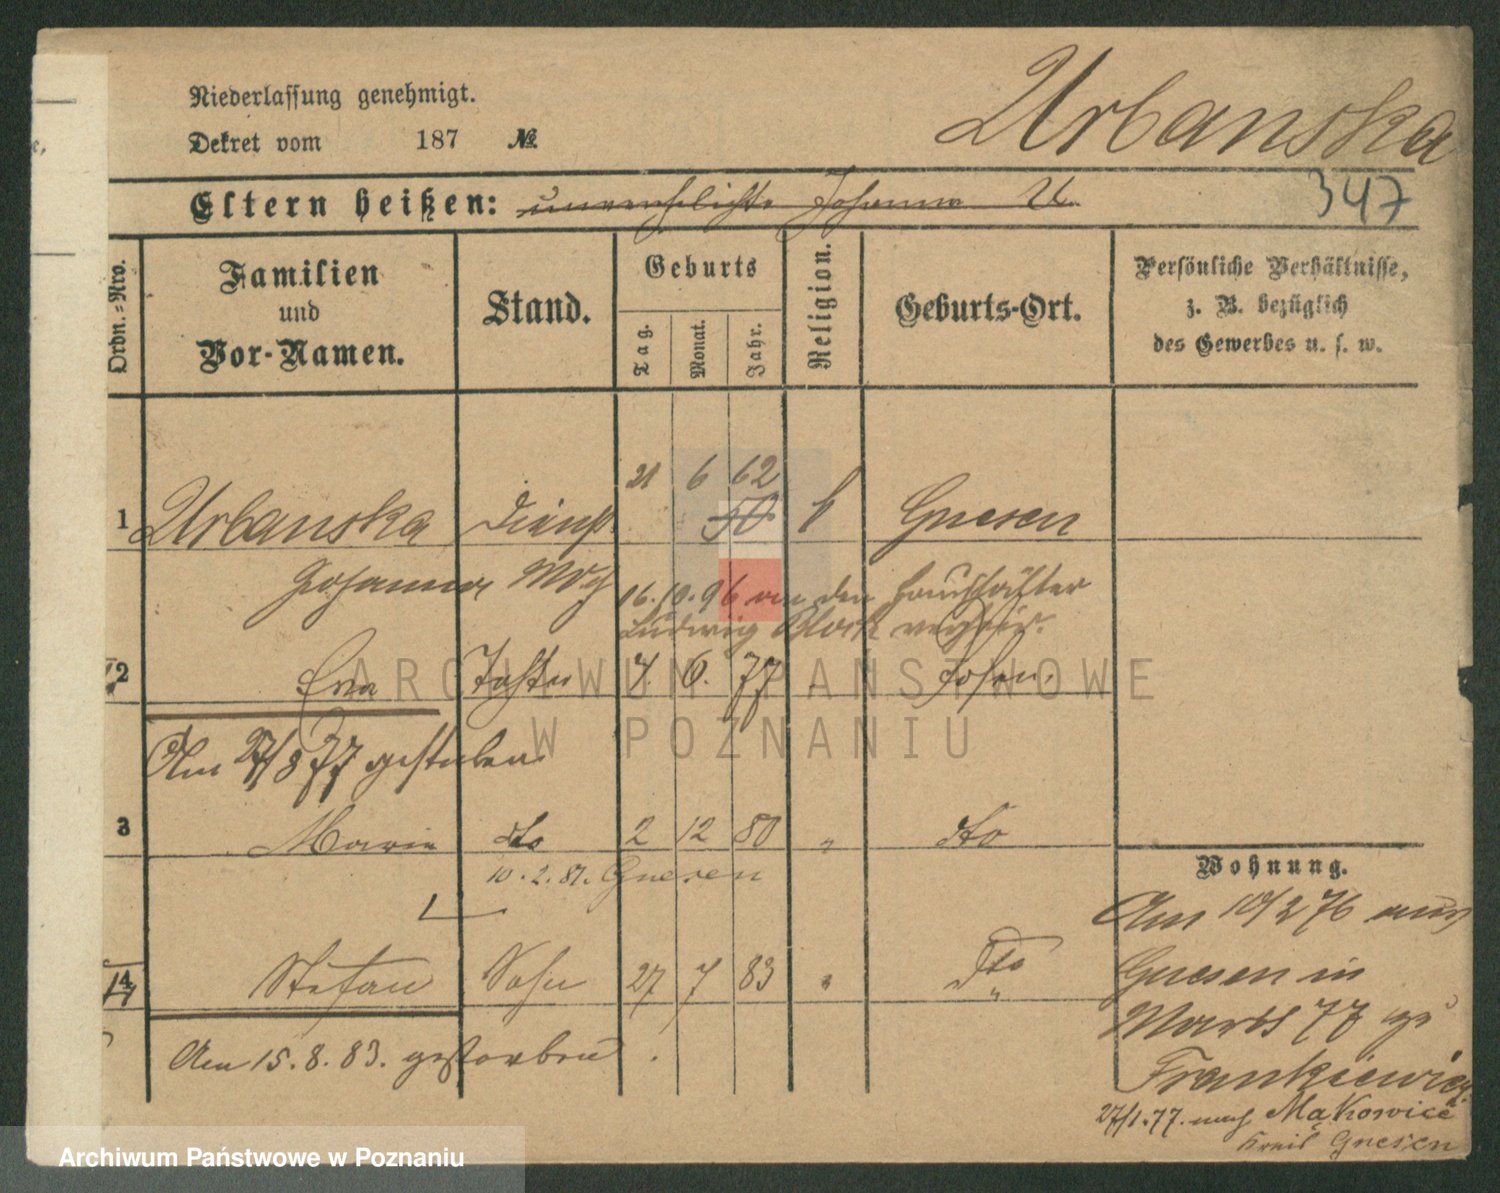 Niederlassung genehmigt.
Dekret vom 187 №
Urbanska
347
Eltern heißen: unverehelichte Johanna U.
Ordn.-Nro.
Familien und Vor-Namen.
Stand.
Geburts
Tag.
Monat.
Jahr.
Religion.
Geburts-Ort.
Persönliche Verhältnisse,
z. B. bezüglich
des Gewerbes u. s. w.
21 6 62
1 Urbanska Dienst 50 k Gnesen
Johanna
16.10.96 an den Haushälter
Ludwig
2 Eva Tochter 7. 6. 77 Posen.
Am 27/8 77 gestorben
3 Marie dto 2 12 80 " dto
10. 2. 81. Gnesen
4 Stefan Sohn 27 7 83 " dto
Am 15. 8. 83. gestorben
Wohnung.
Am 10/2 76 aus
Gnesen in
77
Frankiewicz
27/1.77. nach Mąkowice
Kreis Gnesen
ARCHIWUM PAŃSTWOWE
W POZNANIU
Archiwum Państwowe w Poznaniu